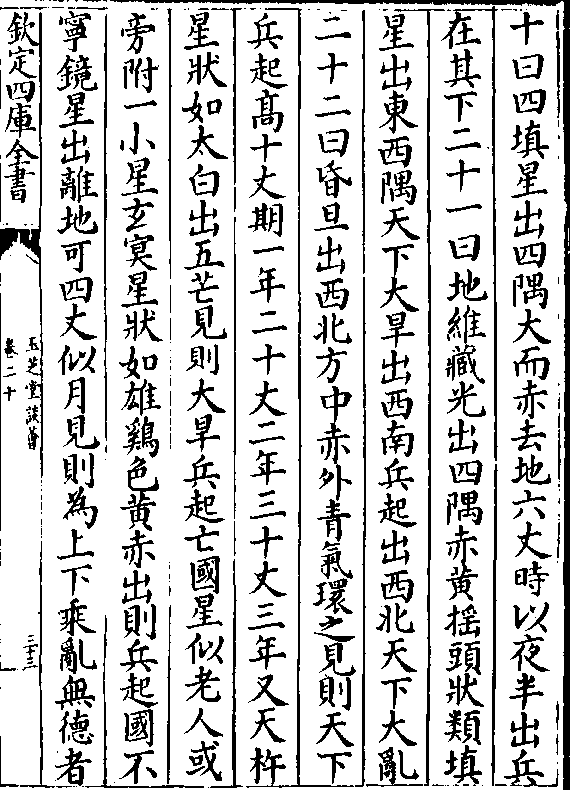 十曰四填星出四隅大而赤去地六丈時以夜半出兵
在其下二十一曰地維藏光出四隅赤黄揺頭狀類填
星出東西隅天下大旱出西南兵起出西北天下大亂
二十二曰昏旦出西北方中赤外青氣環之見則天下
兵起髙十丈期一年二十丈二年三十丈三年又天杵
星狀如太白出五芒見則大旱兵起亡國星似老人或
旁附一小星玄冥星狀如雄鷄色黄赤出則兵起國不
寧鏡星出離地可四丈似月見則為上下乘亂無德者
欽定四庫全書
玉芝堂談薈
卷二十
三十三